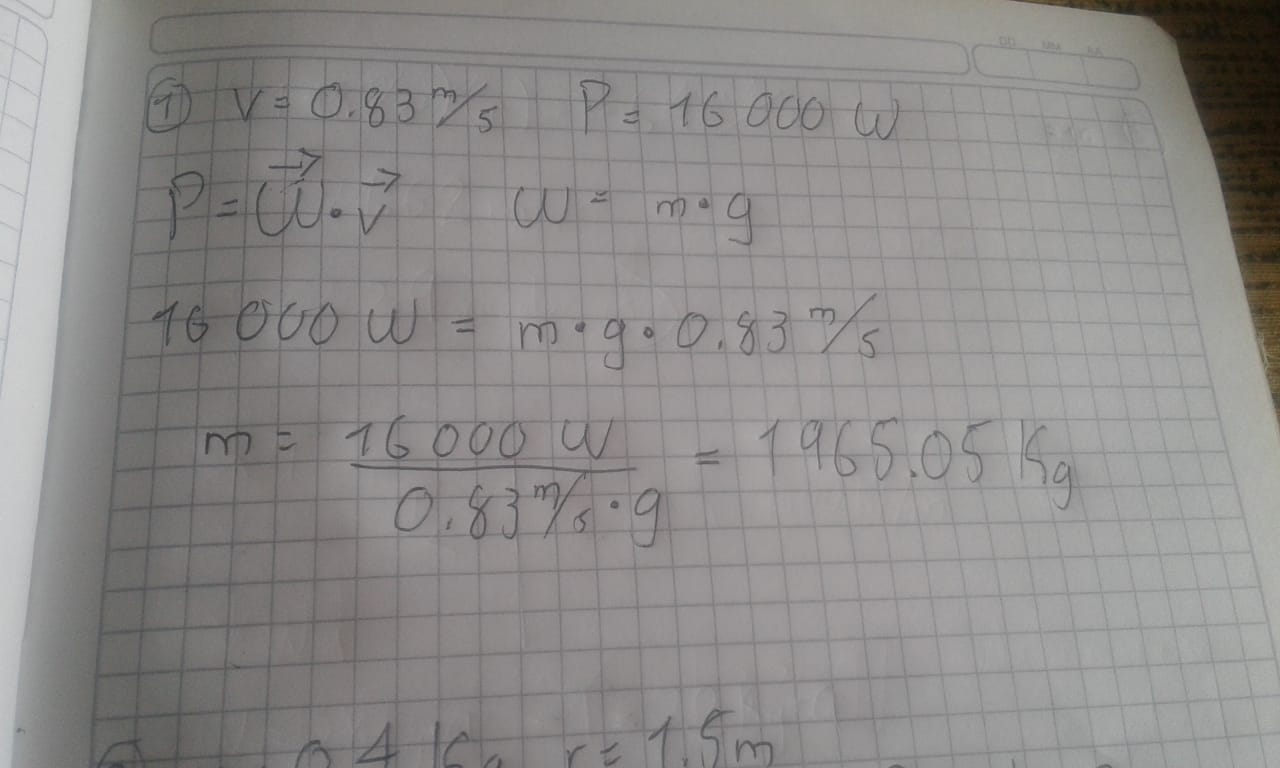 DD MM AA
① V = 0.83 m/s P = 16 000 W
P = W⃗ · v⃗ W = m · g
16 000 W = m · g · 0.83 m/s
m = 16 000 W / 0.83 m/s · g = 1965.05 Kg
0.4 Kg r = 1.5 m